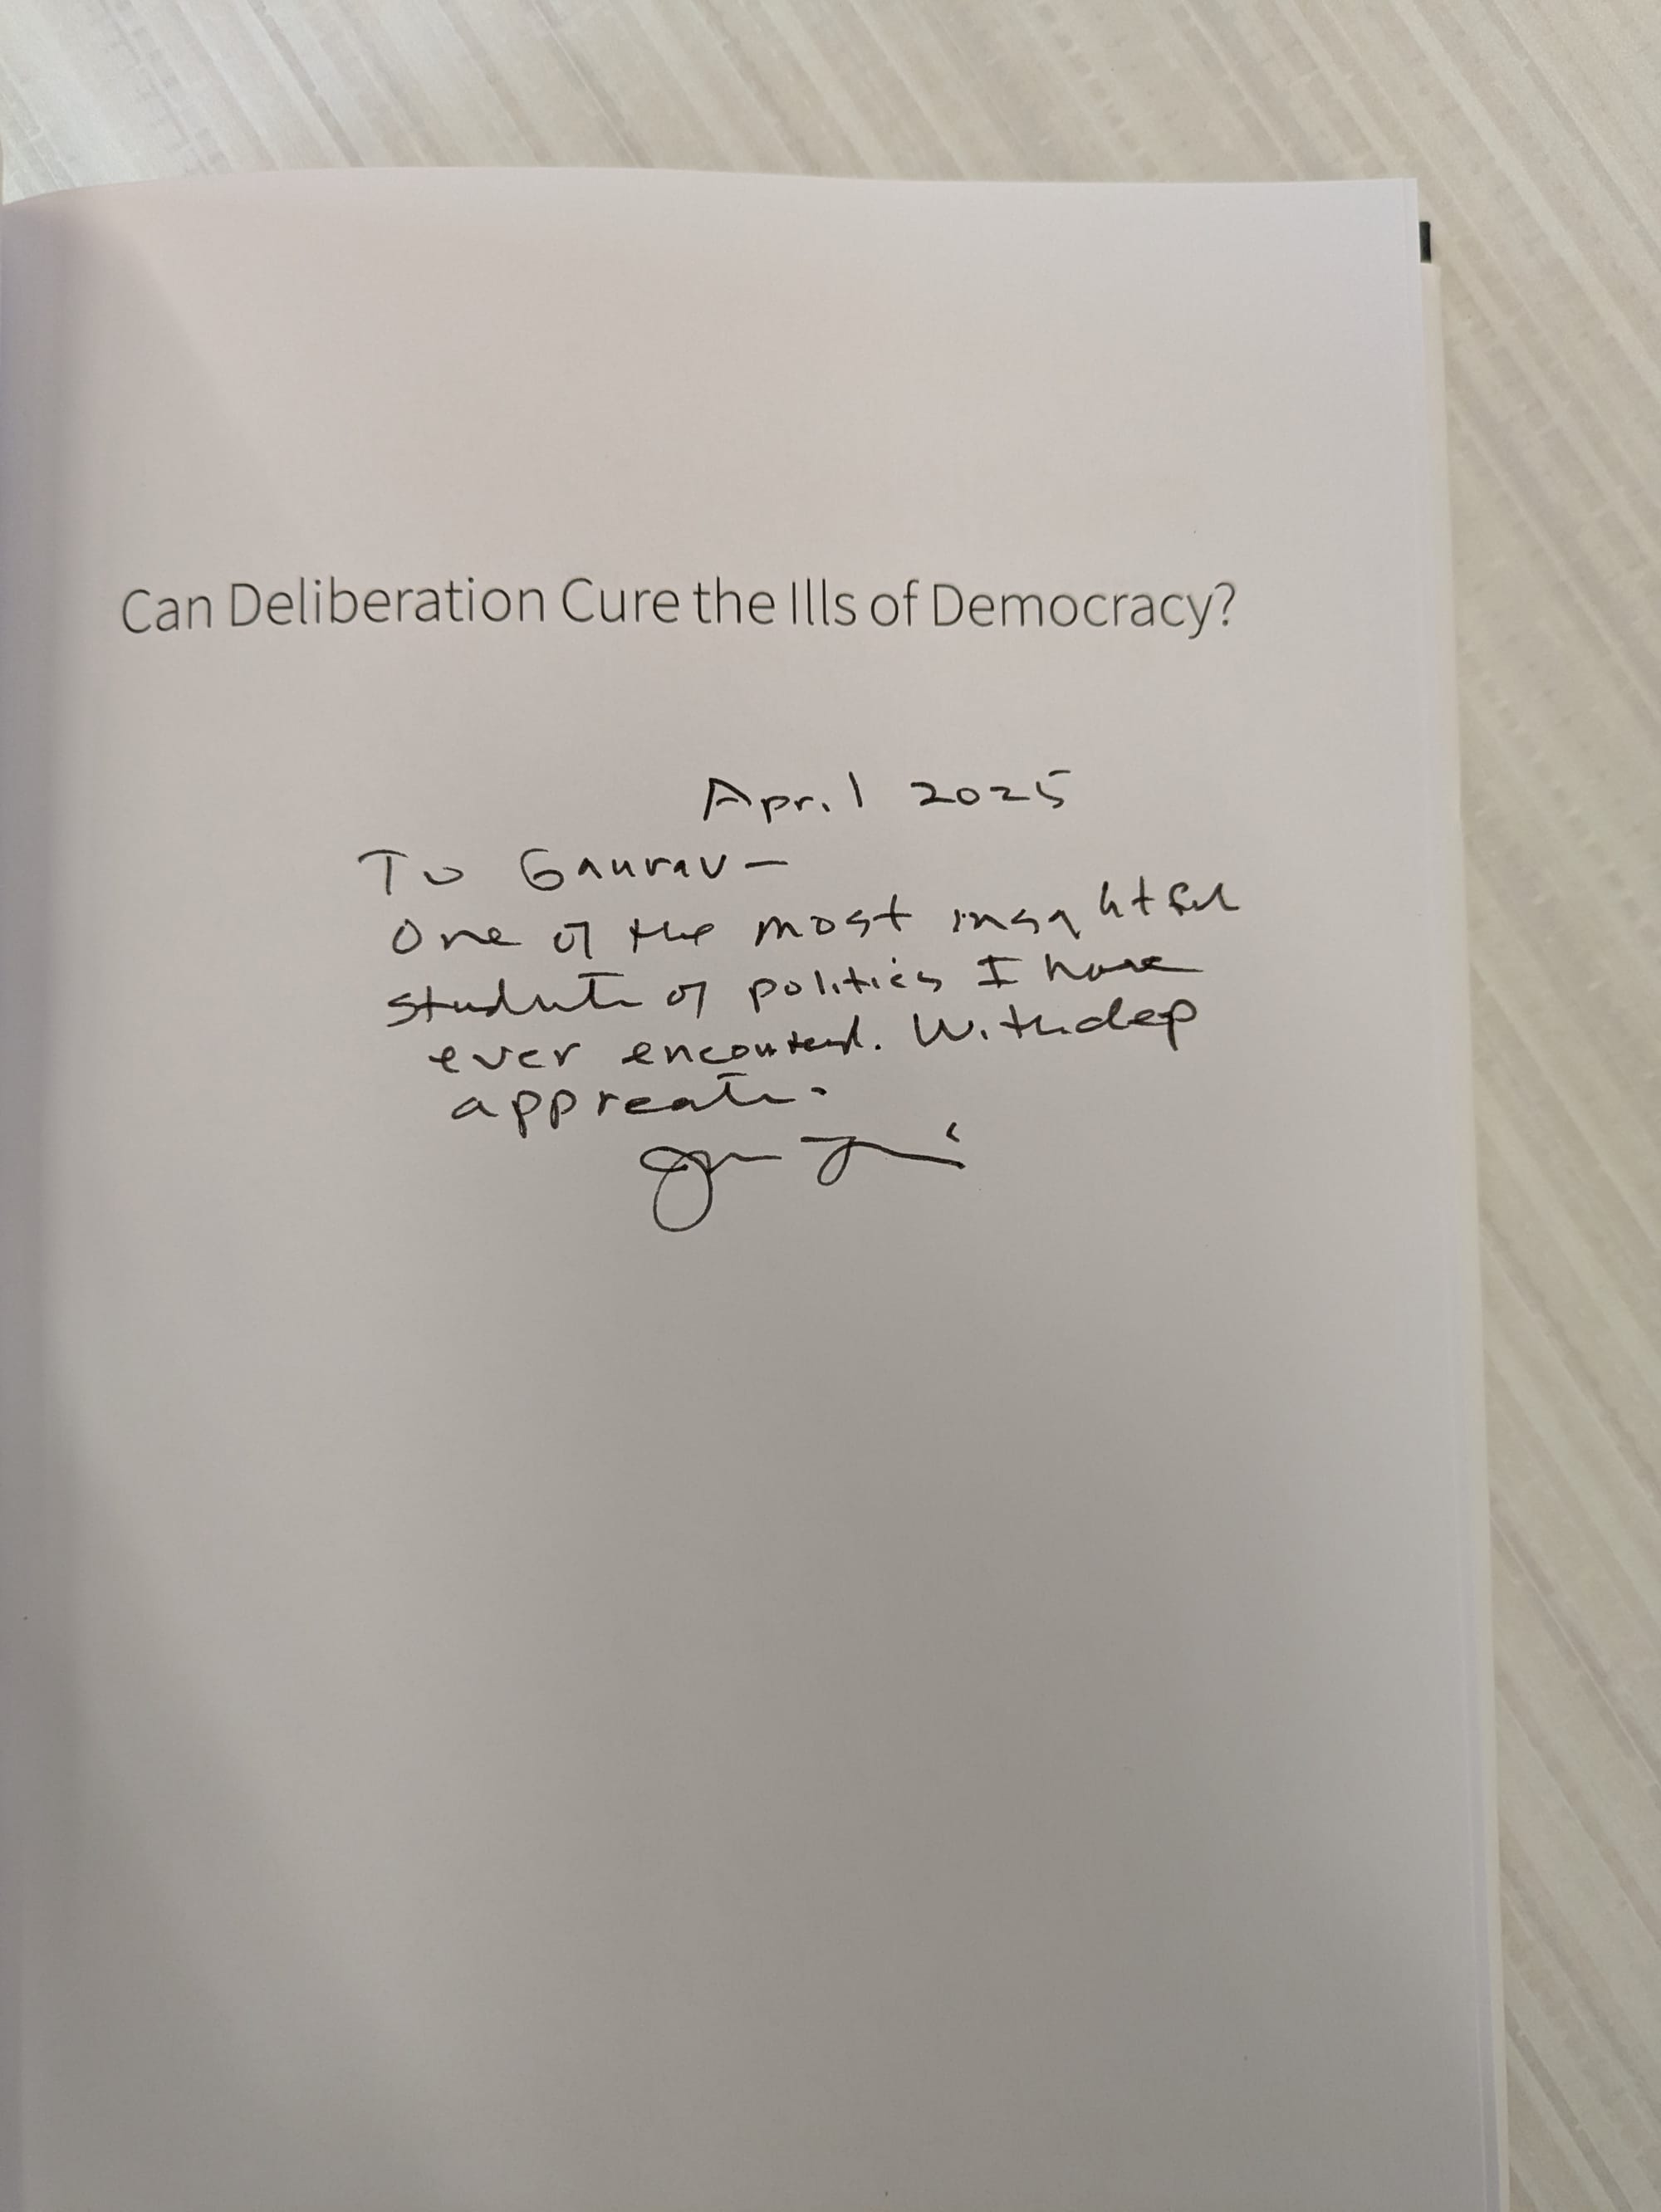 Can Deliberation Cure the Ills of Democracy?
April 2025
To Gaurav—
One of the most insightful
students of politics I have
ever encountered. With deep
appreciation.